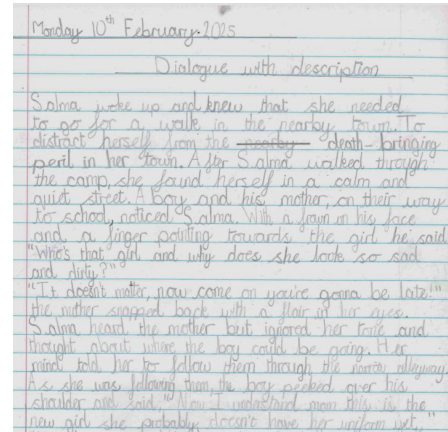 Monday 10th February 2025
Dialogue with description
Salma woke up and knew that she needed
to go for a walk in the nearby town. To
distract herself from the nearby death-bringing
peril in her town. After Salma walked through
the camp, she found herself in a calm and
quiet street. A boy and his mother, on their way
to school, noticed Salma. With a frown on his face
and a finger pointing towards the girl he said
"Who's that girl and why does she look so sad
and dirty?"
"It doesn't matter, now come on you're gonna be late!"
the mother snapped back with a flair in her eyes.
Salma heard the mother but ignored her tone and
thought about where the boy could be going. Her
mind told her to follow them through the narrow alleyway.
As she was following them, the boy peeked over his
shoulder and said, "Now I understand mom this is the
new girl she probably doesn't have her uniform yet,"